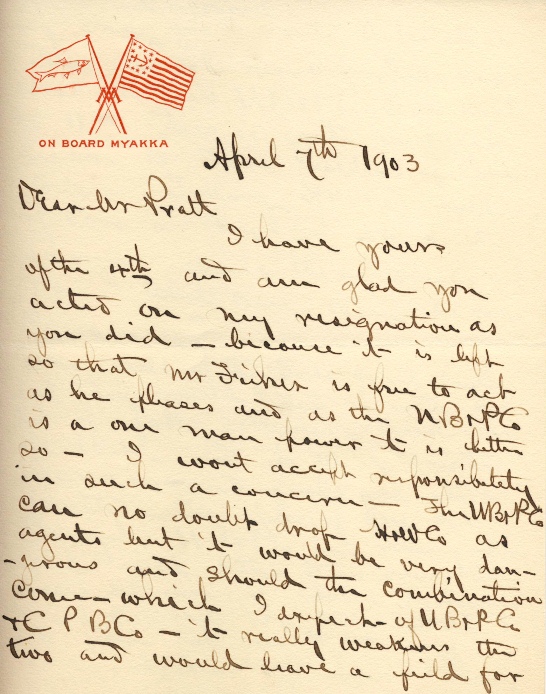 ON BOARD MYAKKA
April 7th 1903
Dear Mr Pratt
I have yours
of the 4th and am glad you
acted on my resignation as
you did – because it is left
so that Mr Fisher is free to act
as he pleases and as the UB&PCo
is a one man power it is better
so – I wont accept responsibility
in such a concern – The UB&PCo
can no doubt drop Co as
agents but it would be very dan-
-gerous and should the combination
come – which I expect – of UB&PCo
& C P B Co – it really weakens the
two and would leave a field for